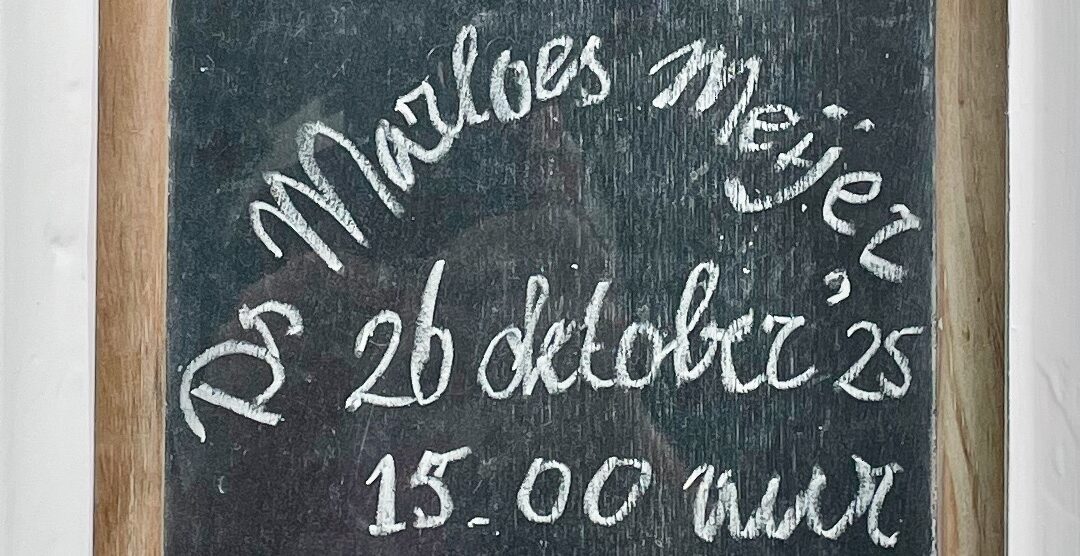 Ds Marloes Meijer,
26 oktober '25
15.00 uur